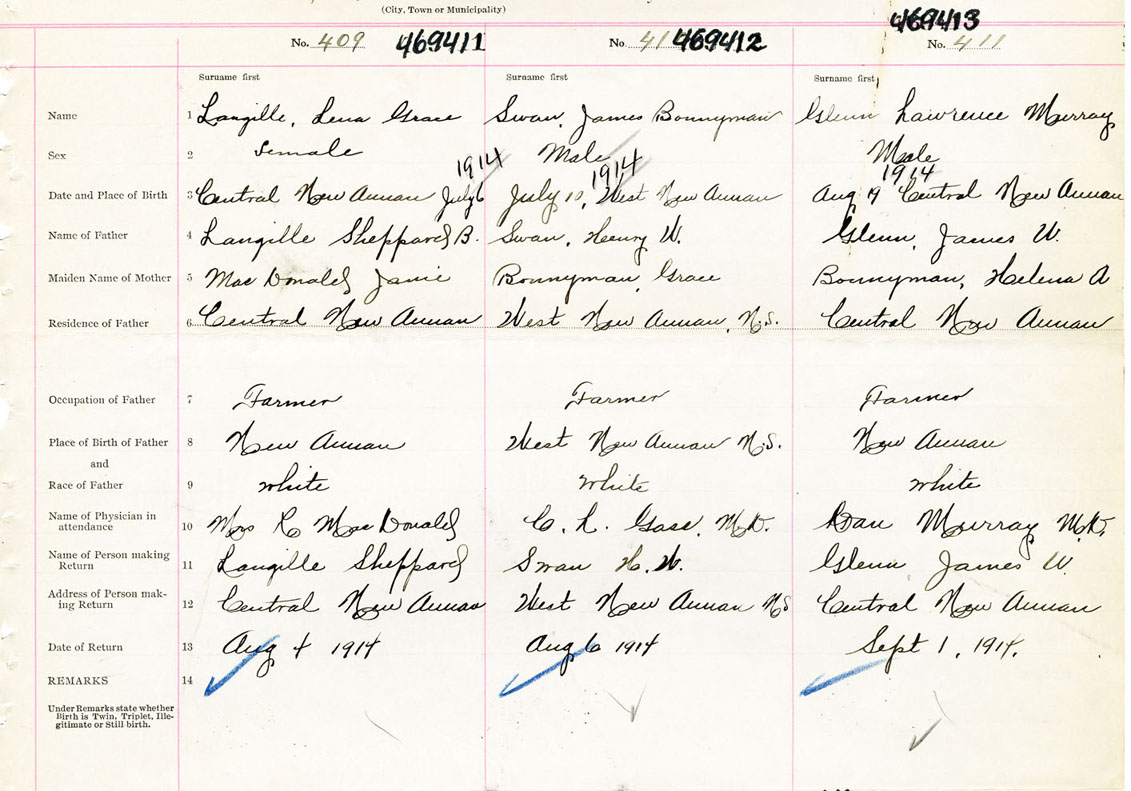 (City, Town or Municipality)
No. 409 469411 No. 41 469412 No. 411 469413
Surname first Surname first Surname first
Name 1 Langille, Lena Grace Swan, James Bonnyman Glenn Lawrence Murray
Sex 2 Female Male Male
1914 1914 1914
Date and Place of Birth 3 Central New Annan July 6 July 10, West New Annan Aug 19 Central New Annan
Name of Father 4 Langille Sheppard B. Swan, Henry W. Glenn, James W.
Maiden Name of Mother 5 Mac Donald, Janie Bonnyman, Grace Bonnyman, Helena A
Residence of Father 6 Central New Annan West New Annan, N.S. Central New Annan
Occupation of Father 7 Farmer Farmer Farmer
Place of Birth of Father 8 New Annan West New Annan N.S. New Annan
and
Race of Father 9 white white white
Name of Physician in
attendance 10 Mrs R MacDonald C. L. Gass, M.D. Dan Murray M.D.
Name of Person making
Return 11 Langille Sheppard Swan H. W. Glenn James W.
Address of Person mak-
ing Return 12 Central New Annan West New Annan N.S Central New Annan
Date of Return 13 Aug 4 1914 Aug 6 1914 Sept 1, 1914.
REMARKS 14
Under Remarks state whether
Birth is Twin, Triplet, Ille-
gitimate or Still birth.